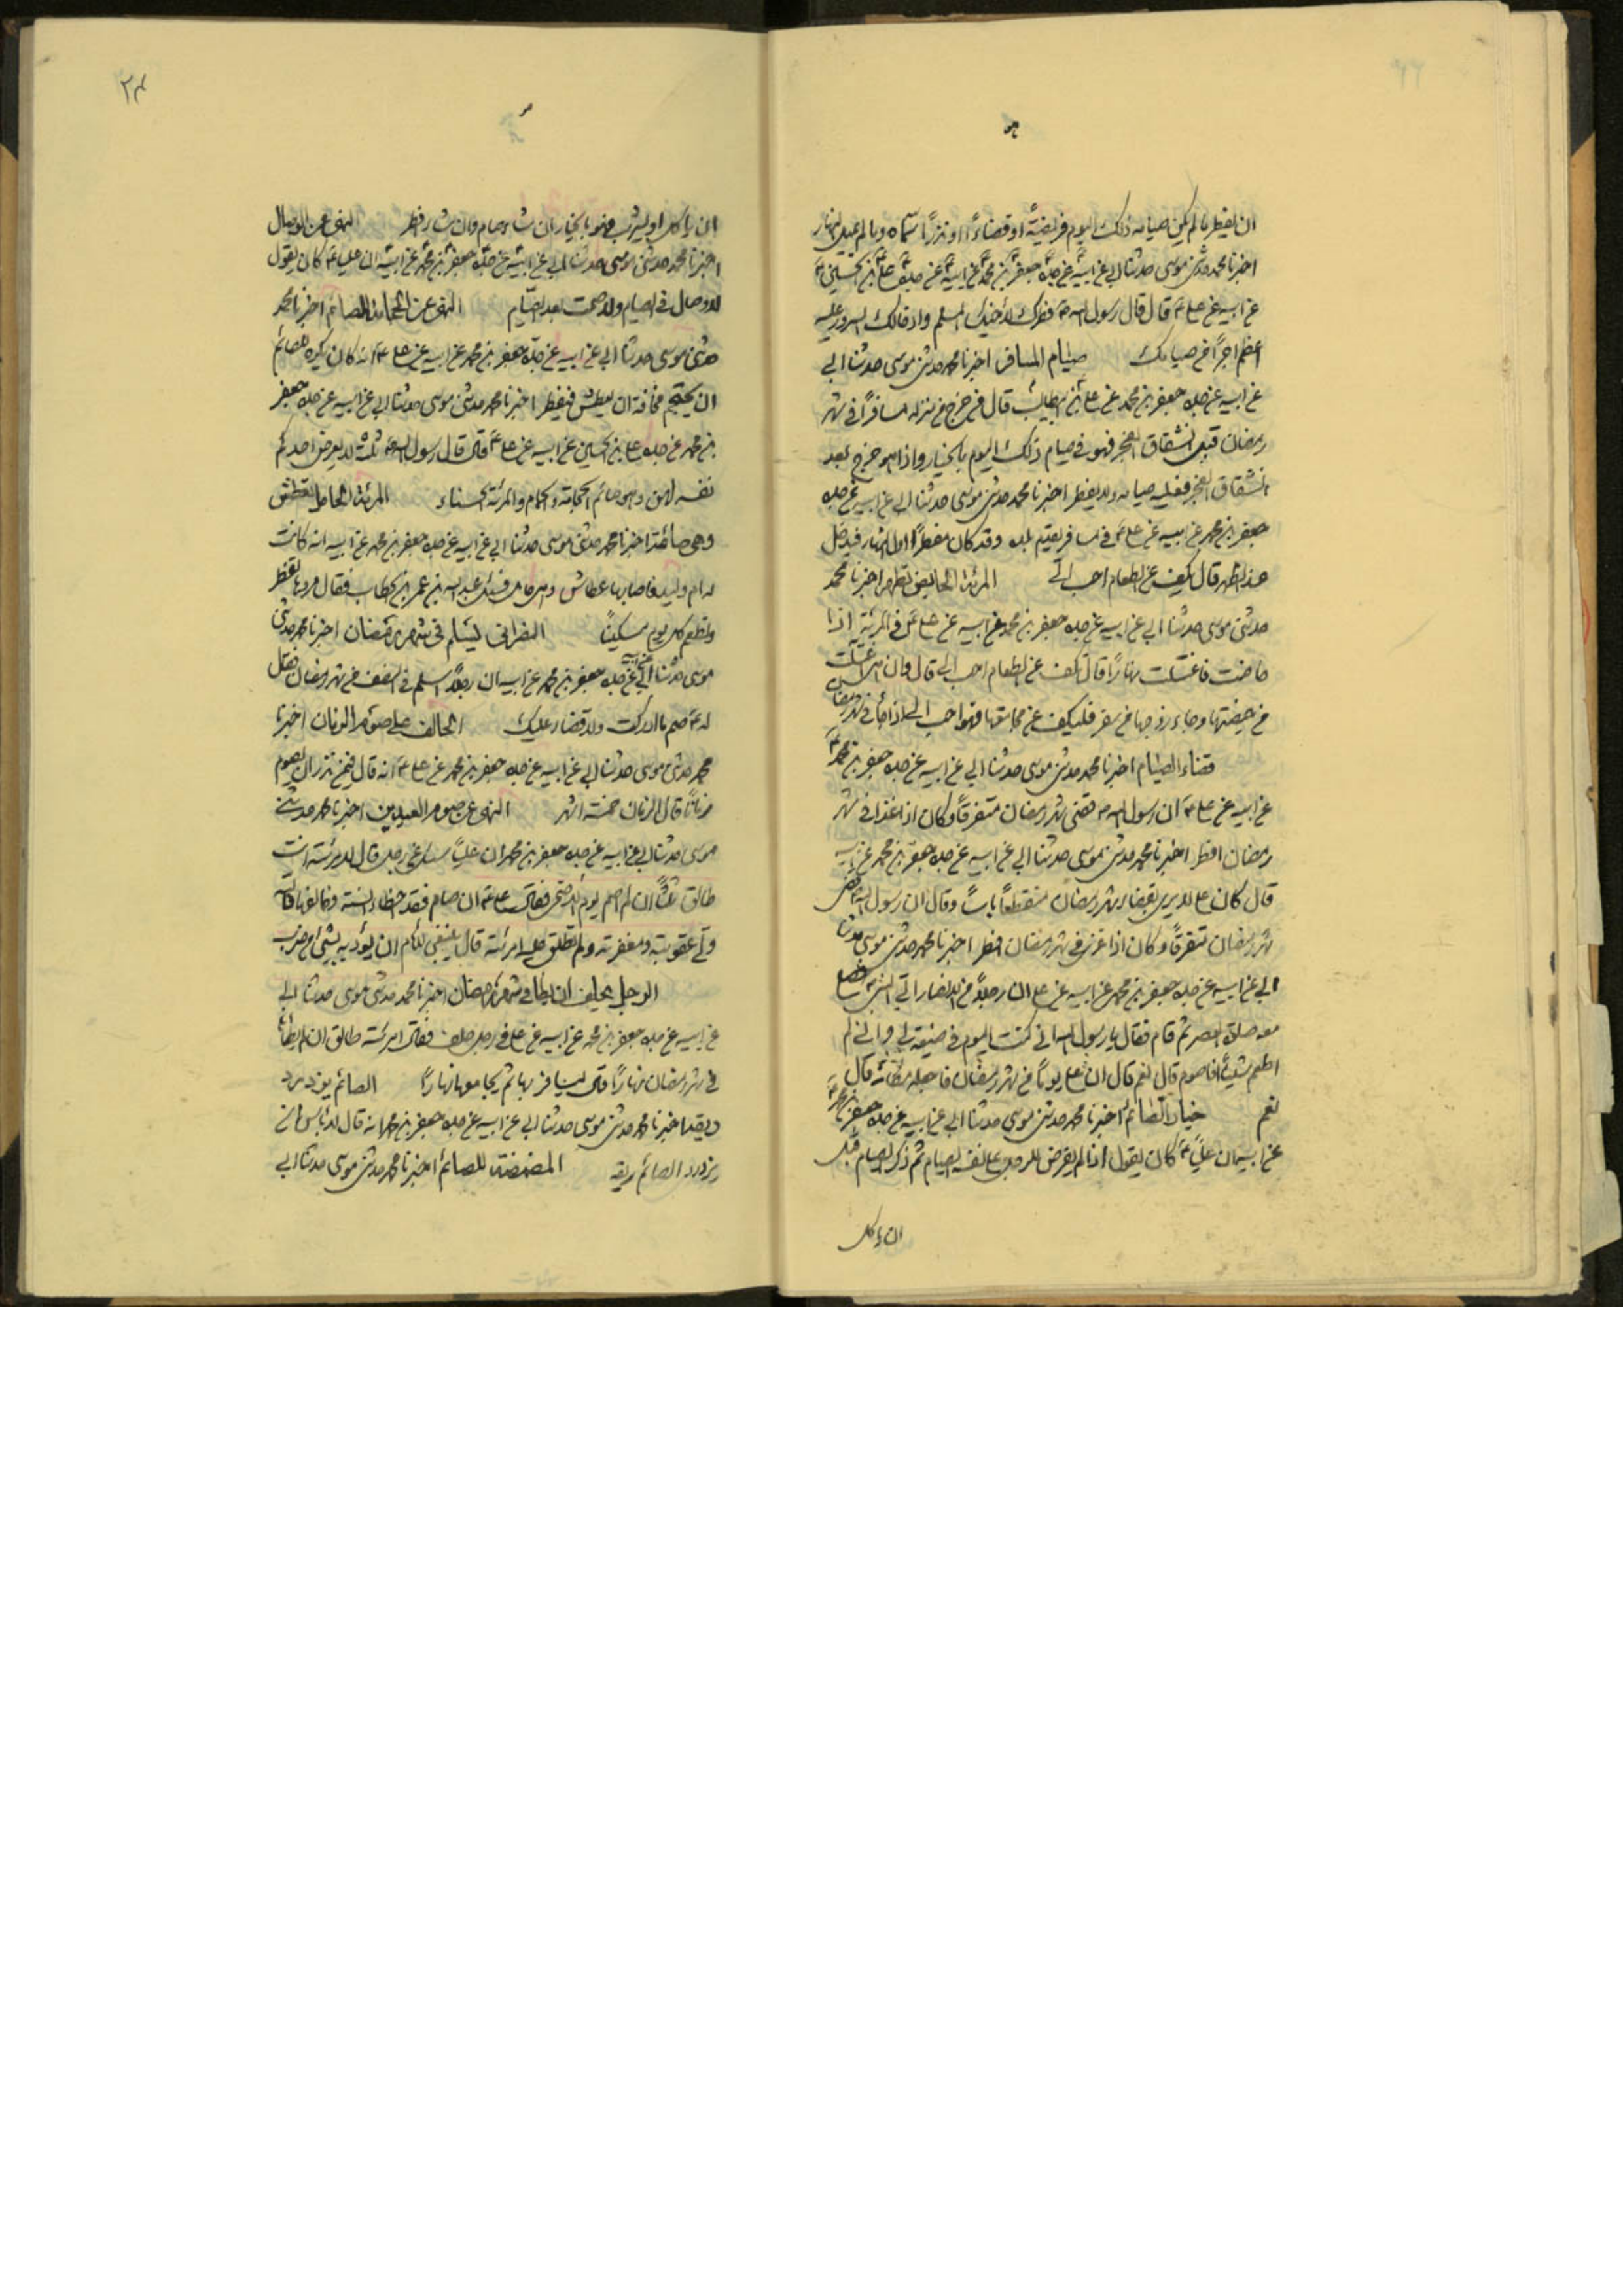 ان يفطر ما لم يكن صيامه ذلك اليوم فريضة او قضاءً او نذرًا سماه وما لم يمل النهار
اخبرنا محمد حدثنى موسى حدثنا ابى عن ابيه عن جده جعفر بن محمد عن ابيه عن جده على بن الحسين
عن ابيه عن على ع قال قال رسول الله ص فطرك لأخيك المسلم وادخالك السرور عليه
اعظم اجرًا من صيامك صيام المسافر اخبرنا محمد حدثنى موسى حدثنا ابى
عن ابيه عن جده جعفر بن محمد عن على بن ابيطالب قال من خرج من منزله مسافرًا فى شهر
رمضان قبل انشقاق الفجر فهو فى صيام ذلك اليوم بالخيار واذا هو خرج بعد
انشقاق الفجر فعليه صيامه ولا يفطر اخبرنا محمد حدثنى موسى حدثنا ابى عن ابيه عن جده
جعفر بن محمد عن ابيه عن على ع فى مسافر يقدم بلده وقد كان مفطرًا اول النهار فيدخل
عند الظهر قال يكف عن الطعام احب الى المرئة الحايض تطهر اخبرنا محمد
حدثنى موسى حدثنا ابى عن ابيه عن جده جعفر بن محمد عن ابيه عن على ع فى المرئة اذا
حاضت فاغتسلت نهارًا قال تكف عن الطعام احب الى قال وان هى اغتسلت
من حيضتها وجاء زوجها من سفر فليكف عن مجامعتها فهو احب الى اذا جاء فى شهر رمضان
قضاء الصيام اخبرنا محمد حدثنى موسى حدثنا ابى عن ابيه عن جده جعفر بن محمد
عن ابيه عن على ع ان رسول الله ص قضى شهر رمضان متفرقًا وكان اذا غزا فى شهر
رمضان افطر اخبرنا محمد حدثنى موسى حدثنا ابى عن ابيه عن جده جعفر بن محمد عن ابيه
قال كان على لا يرى بقضاء شهر رمضان منقطعًا باسًا وقال ان رسول الله ص قضى
شهر رمضان متفرقًا وكان اذا غزى فى شهر رمضان افطر اخبرنا محمد حدثنى موسى حدثنا
ابى عن ابيه عن جده جعفر بن محمد عن ابيه عن على ان رجلاً من الانصار اتى النبى ص فصلى
معه صلوة العصر ثم قام فقال يا رسول الله انى كنت اليوم فى ضيعة لى وانى لم
اطعم شيئًا افاصوم قال نعم قال ان على يومًا من شهر رمضان فاجعله مكانه قال
نعم خيار الصائم اخبرنا محمد حدثنى موسى حدثنا ابى عن ابيه عن جده جعفر بن محمد
عن ابيه ان عليًا ع كان يقول اذا لم يفرض الرجل على نفسه الصيام ثم ذكر الصيام قبل
ان ياكل
٢٣
ان ياكل او يشرب فهو بالخيار ان شاء صام وان شاء افطر النهى عن الوصال
اخبرنا محمد حدثنى موسى حدثنا ابى عن ابيه عن جده جعفر بن محمد عن ابيه ان عليا ع كان يقول
لا وصال فى الصيام ولا صمت بعد الصيام النهى عن الحجامة للصائم اخبرنا محمد
حدثنى موسى حدثنا ابى عن ابيه عن جده جعفر بن محمد عن ابيه عن على ع انه كان يكره للصائم
ان يحتجم مخافة ان يعطش فيفطر اخبرنا محمد حدثنى موسى حدثنا ابى عن ابيه عن جده جعفر
بن محمد عن جده على بن الحسين عن ابيه عن على ع قال قال رسول الله ص ثلث لا يعرض احدكم
نفسه لهن وهو صائم الحجامة والحمام والمرئة الحسناء المرئة الحامل تعطش
وهى صائمة اخبرنا محمد حدثنى موسى حدثنا ابى عن ابيه عن جده جعفر بن محمد عن ابيه انه كانت
له ام وليد فاصابها عطاش وهى حامل فسئل عبد الله بن عمر بن الخطاب فقال مروها تفطر
وتطعم كل يوم مسكينًا النصرانى يسلم فى شهر رمضان اخبرنا محمد حدثنى
موسى حدثنا ابى عن ابيه عن جده جعفر بن محمد عن ابيه ان رجلاً اسلم فى النصف من شهر رمضان فقال
له ع صم ما ادركت ولا قضاء عليك الحالف على صوم الزمان اخبرنا
محمد حدثنى موسى حدثنا ابى عن ابيه عن جده جعفر بن محمد عن على ع انه قال فيمن نذر ان يصوم
زمانًا قال الزمان خمسة اشهر النهى عن صوم العيدين اخبرنا محمد حدثنى
موسى حدثنا ابى عن ابيه عن جده جعفر بن محمد ان عليًا سئل عن رجل قال لامرئته انت
طالق ثلثًا ان لم اصم يوم الاضحى فقال على ع ان صام فقد اخطاء السنة وخالفها فالله
ولى عقوبته ومغفرته ولم تطلق عليه امرئته قال ينبغى للامام ان يؤدبه بشئ من ضرب
الرجل يحلف ان يطا فى شهر رمضان اخبرنا محمد حدثنى موسى حدثنا ابى
عن ابيه عن جده جعفر بن محمد عن ابيه عن على فى رجل حلف فقال امرئته طالق ان لم يطأها
فى شهر رمضان نهارًا قال يسافر بها ثم يجامعها نهارًا الصائم يزدرد
ريقه اخبرنا محمد حدثنى موسى حدثنا ابى عن ابيه عن جده جعفر بن محمد انه قال لا باس ان
يزدرد الصائم ريقه المضمضة للصائم اخبرنا محمد حدثنى موسى حدثنا ابى